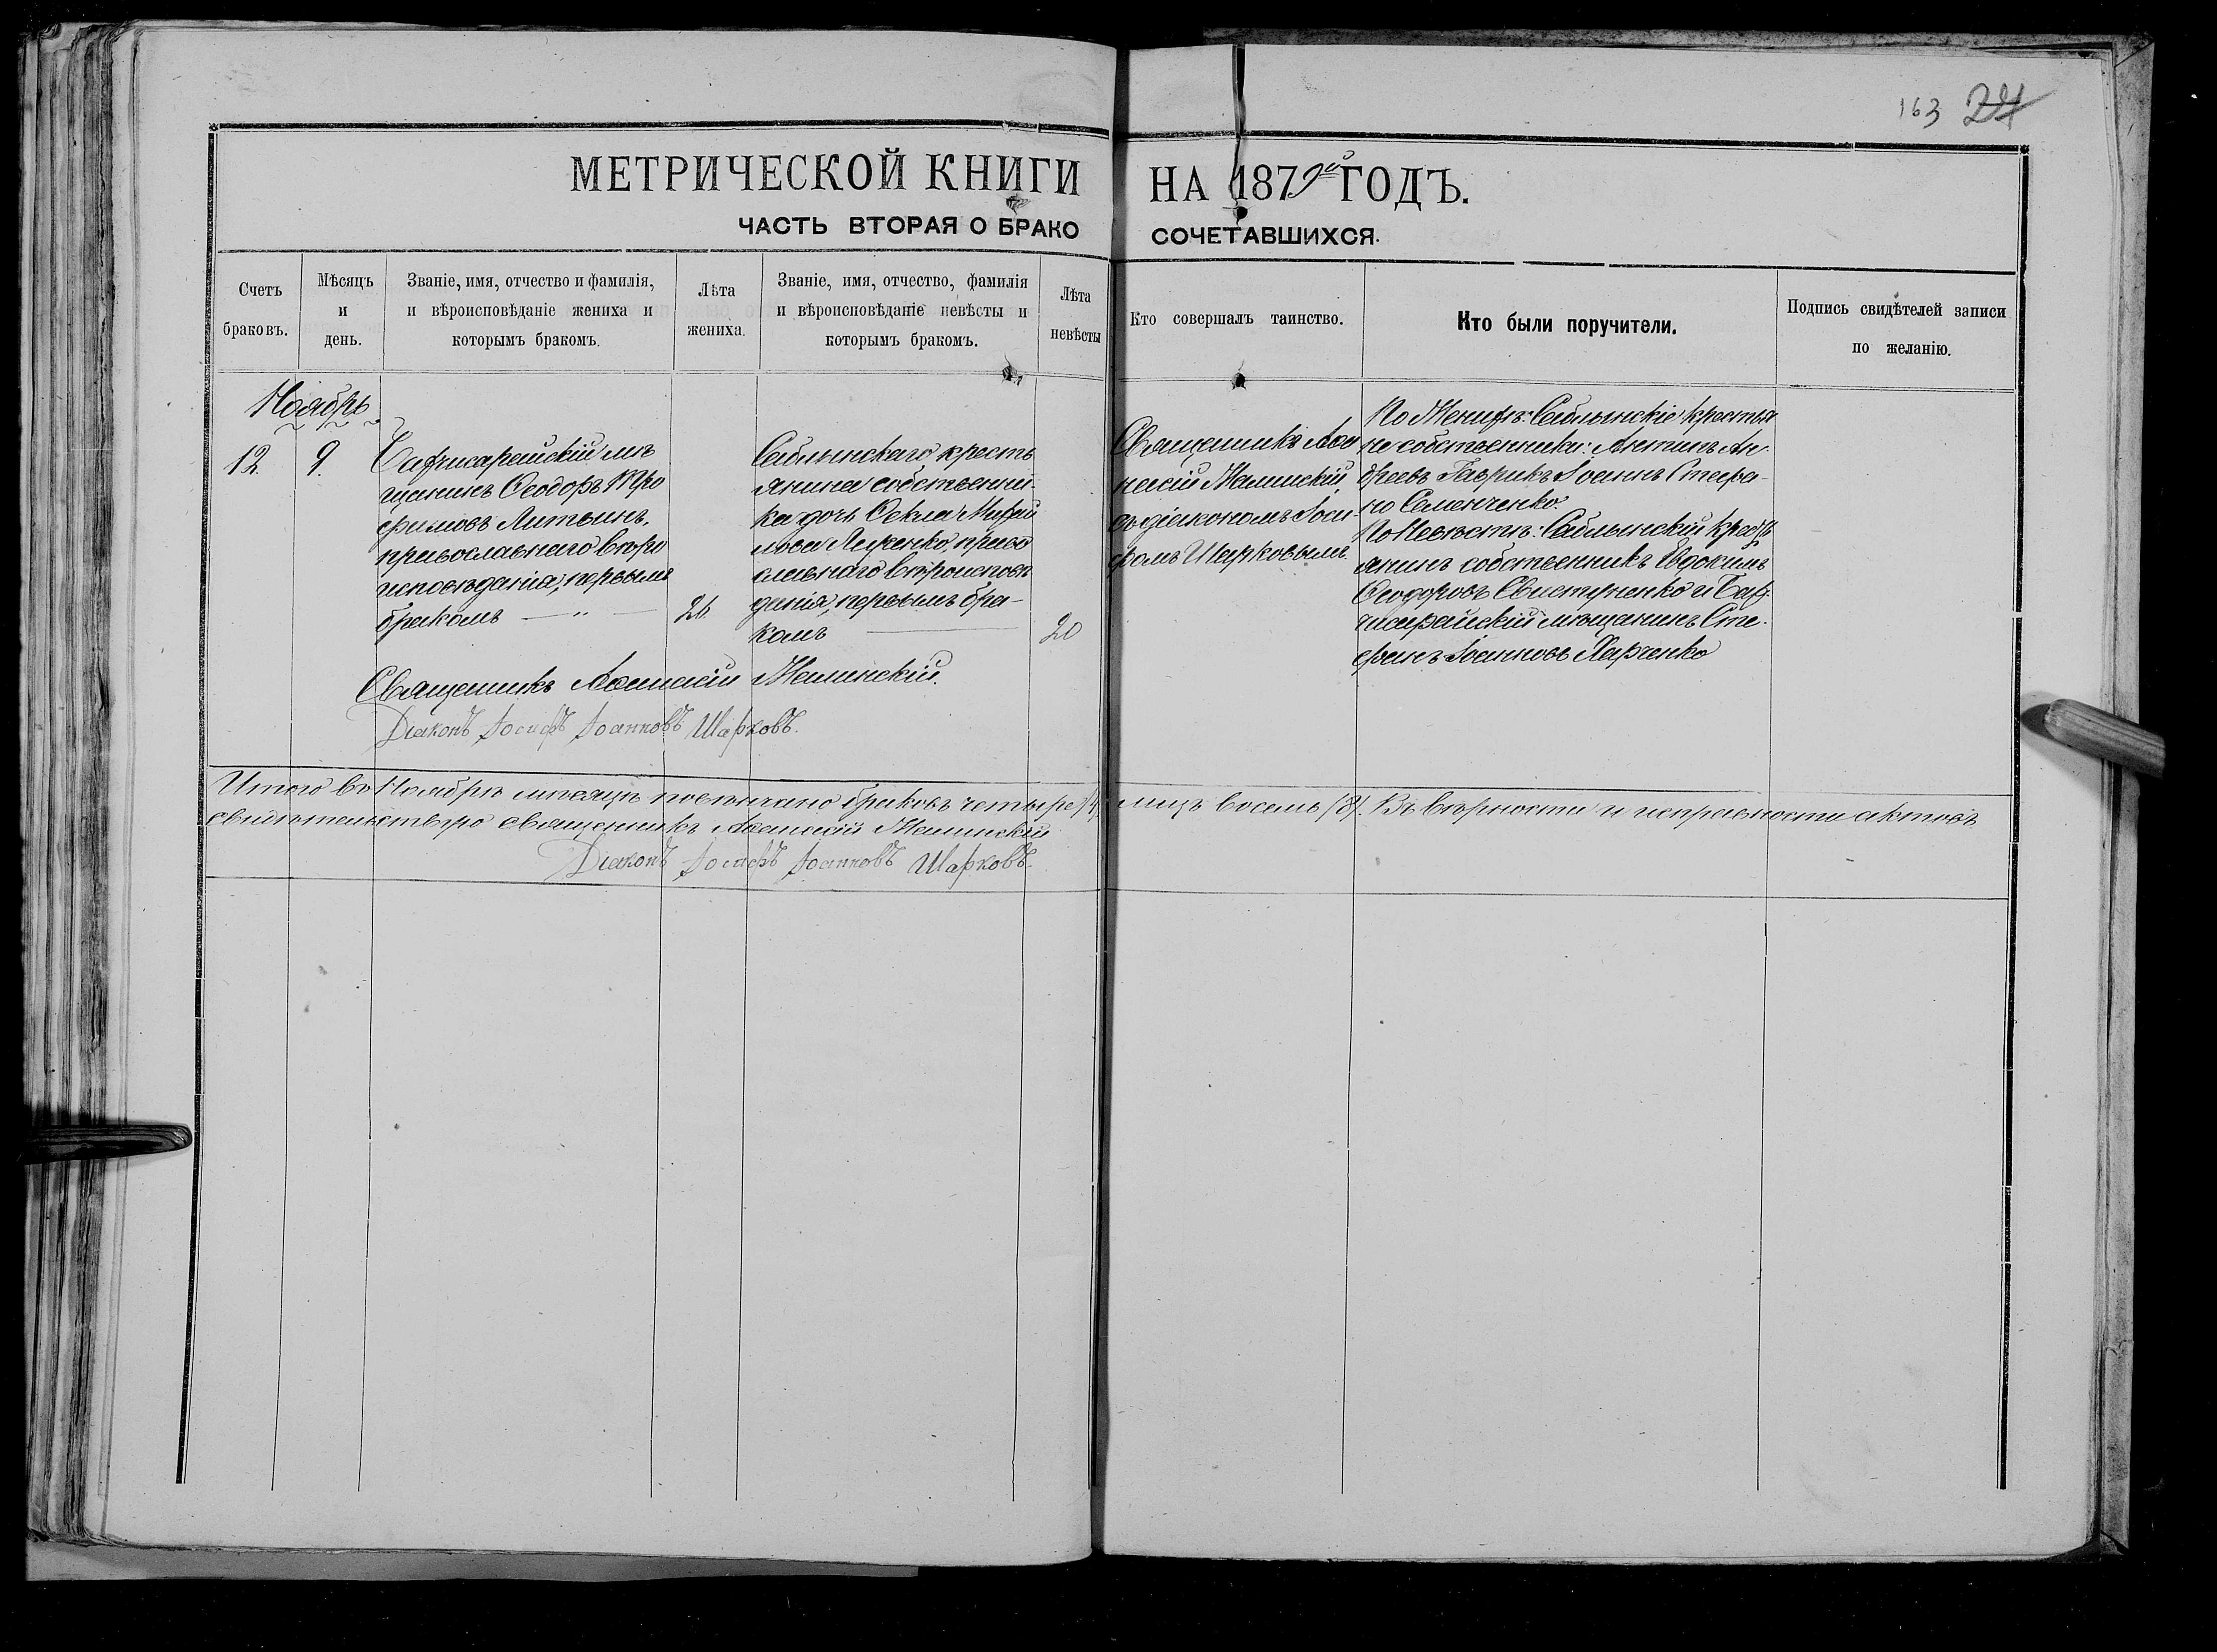 163 24
МЕТРИЧЕСКОЙ КНИГИ НА 1879й ГОДЪ.
ЧАСТЬ ВТОРАЯ О БРАКОСОЧЕТАВШИХСЯ.
Счетъ
браковъ.
Мѣсяцъ
и
день.
Званіе, имя, отчество и фамилія,
и вѣроисповѣданіе жениха и
которымъ бракомъ.
Лѣта
жениха.
Званіе, имя, отчество, фамилія
и вѣроисповѣданіе невѣсты и
которымъ бракомъ.
Лѣта
невѣсты
Кто совершалъ таинство.
Кто были поручители.
Подпись свидѣтелей записи
по желанію.
Ноябрь
12
9.
Бахчисарайскій мѣ
щанинъ Ѳеодоръ Тро
фимовъ Литвинъ,
православнаго вѣро
исповѣданія, первымъ
бракомъ — „ —
26
Саблынскаго кресть
янина собственни-
ка дочь Ѳекла Михай
лова Лифенко, право
славнаго вѣроисповѣ
данія, первымъ бра-
комъ
20
Священникъ Аѳа
насій Малинскій
съ діакономъ Іоси-
фомъ Шарковымъ.
По Женихѣ: Саблынскіе крестья
не собственники: Антипъ Ан-
дреевъ Гаврикъ Іоаннъ Стефа-
но Семенченко.
По Невѣстѣ: Саблынскій кресть
янинъ собственникъ Евдокимъ
Ѳеодоровъ Свистуненко и Бах-
чисарайскій мѣщанинъ Сте-
фанъ Іоанновъ Харченко
Священникъ Аѳанасій Малинскій.
Діаконъ Іосифъ Іоанновъ Шарковъ.
Итого въ Ноябрѣ мѣсяцѣ повѣнчано браковъ четыре /4/ лицъ восемь /8/. Въ вѣрности и исправности актовъ
свидѣтельствую священникъ Аѳанасій Малинскій
Діаконъ Іосифъ Іоанновъ Шарковъ.